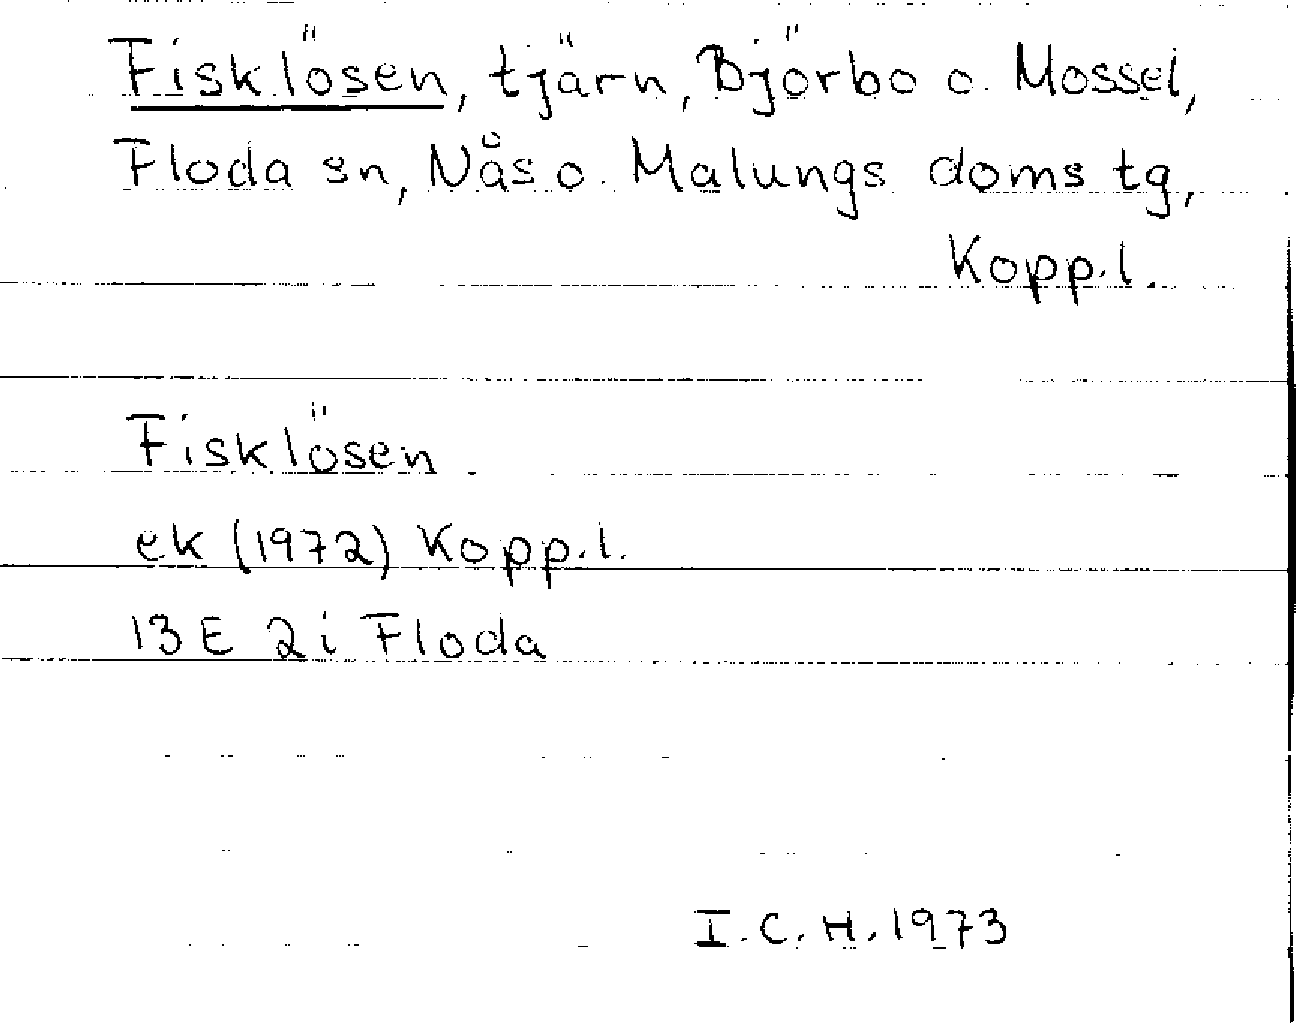 Fisklösen, tjärn, Björbo o. Mossel,
Floda sn, Nås o. Malungs doms tg,
Kopp.l.
Fisklösen
ek (1972) Kopp.l.
13E 2i Floda
I.C.H. 1973